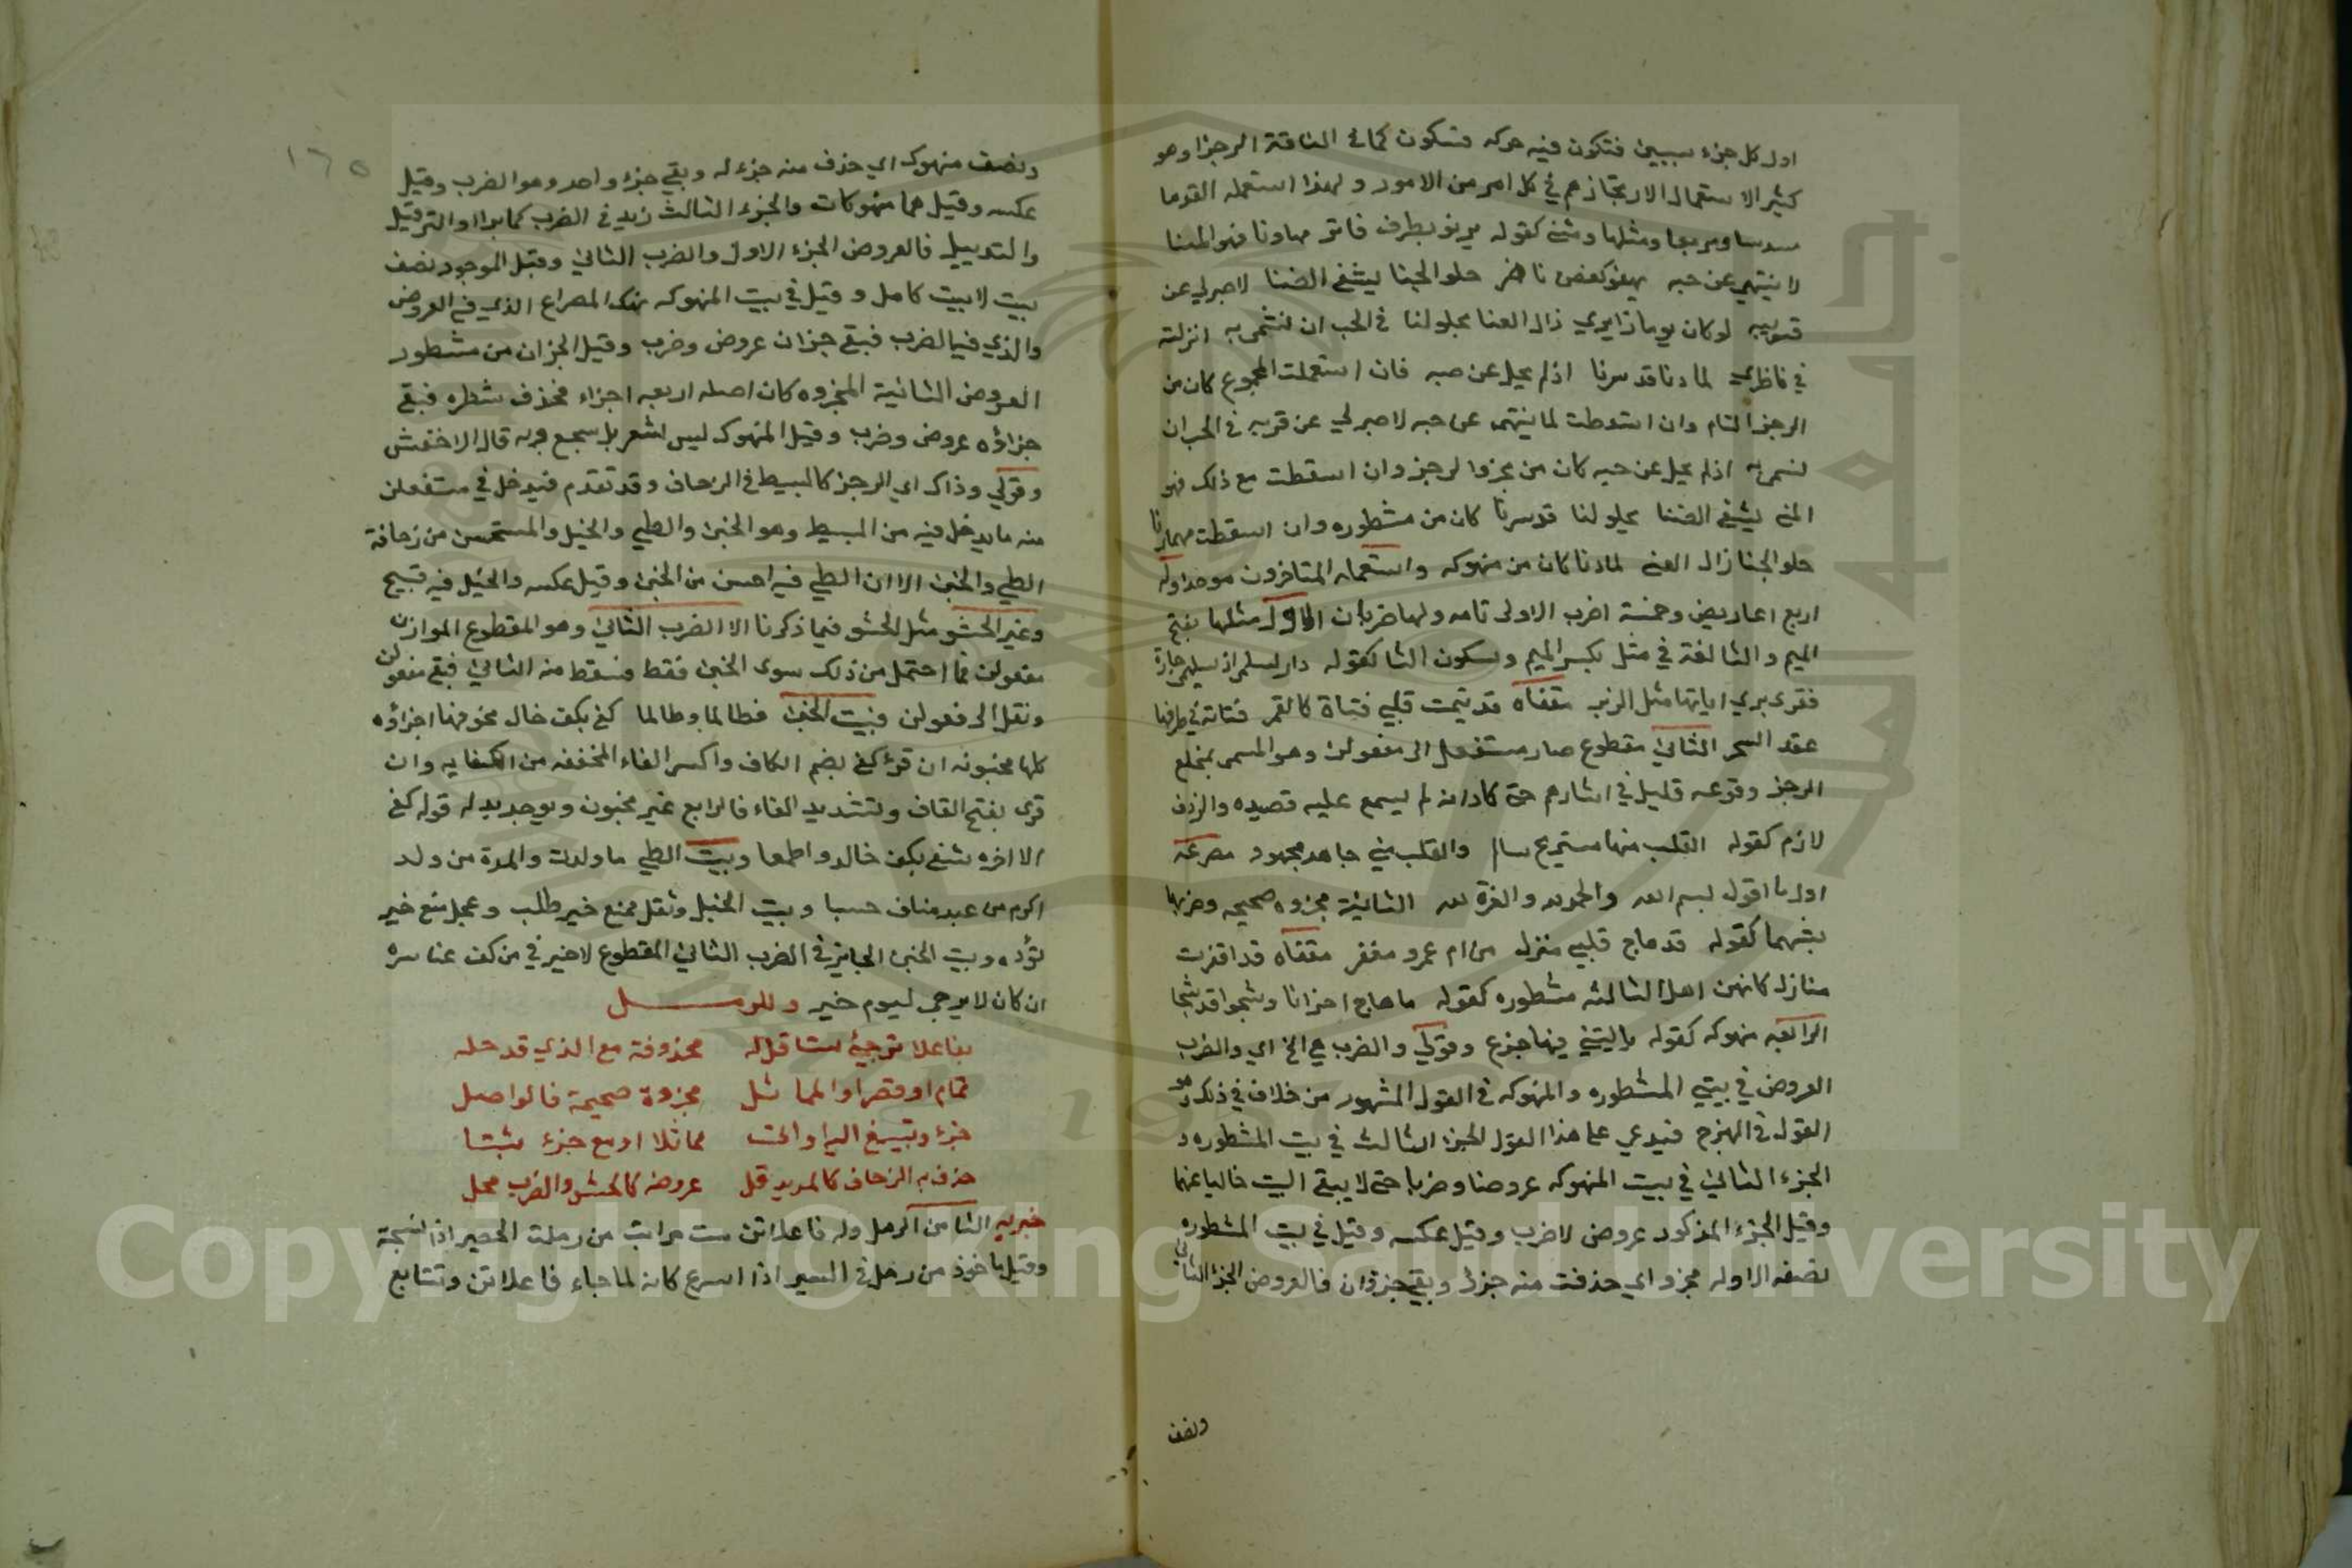 اول كل جزء سببين فتكون فيه حركه فسكون كما في الناقة الرجزا وهو
كثير الاستعمال لارتجازهم في كل امر من الامور ولهذا استعمله القوما
مسدسا ومربعا ومثلثا ومثنى كقوله يرنو بطرف فاتر مهما رنا فهو المنا
لا ننتهي عن حبه يهفو كغصن ناضر حلو الجنا يشفي الضنا لا صبر لي عن
قربه لو كان يوما زايري زال العنا يحلو لنا في الحب ان نسمى به انزلته
في ناظري لما دنا قد سرنا اذ لم يحل عن حبه فان استعملت المجموع كان من
الرجز التام وان اسقطت لما ننتهي عن حبه لا صبر لي عن قربه في الحب ان
نسمى به اذ لم يحل عن حبه كان من مجزو الرجز وان اسقطت مع ذلك فهو
المنى يشفي الضنا يحلو لنا قد سرنا كان من مشطوره وان اسقطت مهما رنا
حلو الجنا زال العنى لما دنا كان من منهوكه واستعماله المتاخرون موحدا وله
اربع اعاريض وخمسة اضرب الاولى تامه ولها ضربان الاول مثلها بفتح
الميم والثا لغة في مثل بكسر الميم وسكون الثا كقوله دار لسلمى اذ سليمى جارة
فقرى ترى اياتها مثل الزبر مقفاه قد تيمت قلبي فتاة كالقمر فتانة في طرفها
عقد السحر الثاني مقطوع صار مستفعل الى مفعولن وهو المسمى بمخلع
الرجز وقوعه قليل في اشعارهم حتى كاد انه لم يسمع عليه قصيده والردف
لازم كقوله القلب منها مستريح سالم والقلب مني جاهد مجهود مصرعه
اول ما اقول بسم الله والحمد لله والغرة لله الثانية مجزوه صحيحه وضربها
يشبهها كقوله قد هاج قلبي منزل من ام عمرو مقفر مقفاه قد اقفرت
منازل كانهن اهل الثالثه مشطوره كقوله ما هاج احزانا وشجوا قد شجا
الرابعه منهوكه كقوله يا ليتني فيها جذع وقولي والضرب هي الخ اي والضرب
العروض في بيتي المشطوره والمنهوكه في القول المشهور من خلاف في ذلك وهو
القول في الهزج فيدعي على هذا القول الجزء الثالث في بيت المشطوره و
الجزء الثاني في بيت المنهوكه عروضا وضربا حتى لا يبقى البيت خاليا عنهما
وقيل الجزء المذكور عروض لا ضرب وقيل عكسه وقيل في بيت المشطوره
نصفه الاول مجزو اي حذفت منه جزؤ وبقي جزؤان فالعروض الجزء الثاني
ونصف
١٦٥
ونصف منهوك اي حذف منه جزء له وبقي جزء واحد وهو الضرب وقيل
عكسه وقيل هما منهوكات والجزء الثالث زيد في الضرب كما يزاد الترفيل
والتدييل فالعروض الجزء الاول والضرب الثاني وقيل الموجود نصف
بيت لا بيت كامل وقيل في بيت المنهوكه نهك المصراع الذي في العروض
والذي فيه الضرب فبقي جزان عروض وضرب وقيل الجزان من مشطور
العروض الثانية المجزوه كان اصله اربعه اجزاء فحذف شطره فبقي
جزاؤه عروض وضرب وقيل المنهوك ليس بشعر بل سجع وبه قال الاخفش
وقولي وذاك اي الرجز كالبسيط في الزحاف وقد تقدم فيدخل في مستفعلن
منه ما يدخل فيه من البسيط وهو الخبن والطي والخبل والمستحسن من زحافة
الطي والخبن الا ان الطي فيه احسن من الخبن وقيل عكسه والخبل فيه قبيح
وغير الحشو مثل الحشو فيما ذكرنا الا الضرب الثاني وهو المقطوع الموازن
مفعولن فما احتمل من ذلك سوى الخبن فقط فسقط منه الثاني فبقي معولن
ونقل الى فعولن وبيت الخبن فطالما وطالما كفى بكف خالد مخوفها اجزاؤه
كلها مخبونه ان قرئ كفي بضم الكاف واكسر الفاء المخففه من الكفايه وان
قرى بفتح القاف وتشديد الفاء فالرابع غير مخبون ويوجد بدله قوله كفى
الا اخره شفى بكف خالد واطعما وبيت الطي ما ولدت والدة من ولد
اكرم من عبد مناف حسبا وبيت الخبل وثقل منع خير طلب وعجل منع خير
تؤده وبيت الخبن الجايز في الضرب الثاني المقطوع لا خير في من كف عنا شره
ان كان لا يرجى ليوم خير وللرمـــل
بفاعلا ترجئ ستا قل له محذوفة مع الذي قد حله
تمام او قصر او المماثل مجزوة صحيحة فالواصل
جزء وتسبيغ اليه او الحت مماثلا اربع جزء بثتا
حذف به الزحاف كالمديد قل عروضه كالحشو والضرب محل
خبر به الثامن الرمل وله فاعلاتن ست مرات من رملت الحصير اذا نسجته
وقيل ماخوذ من رمل في السير اذا اسرع كانه لما جاء فاعلاتن وتتابع
Copyright © King Saud University